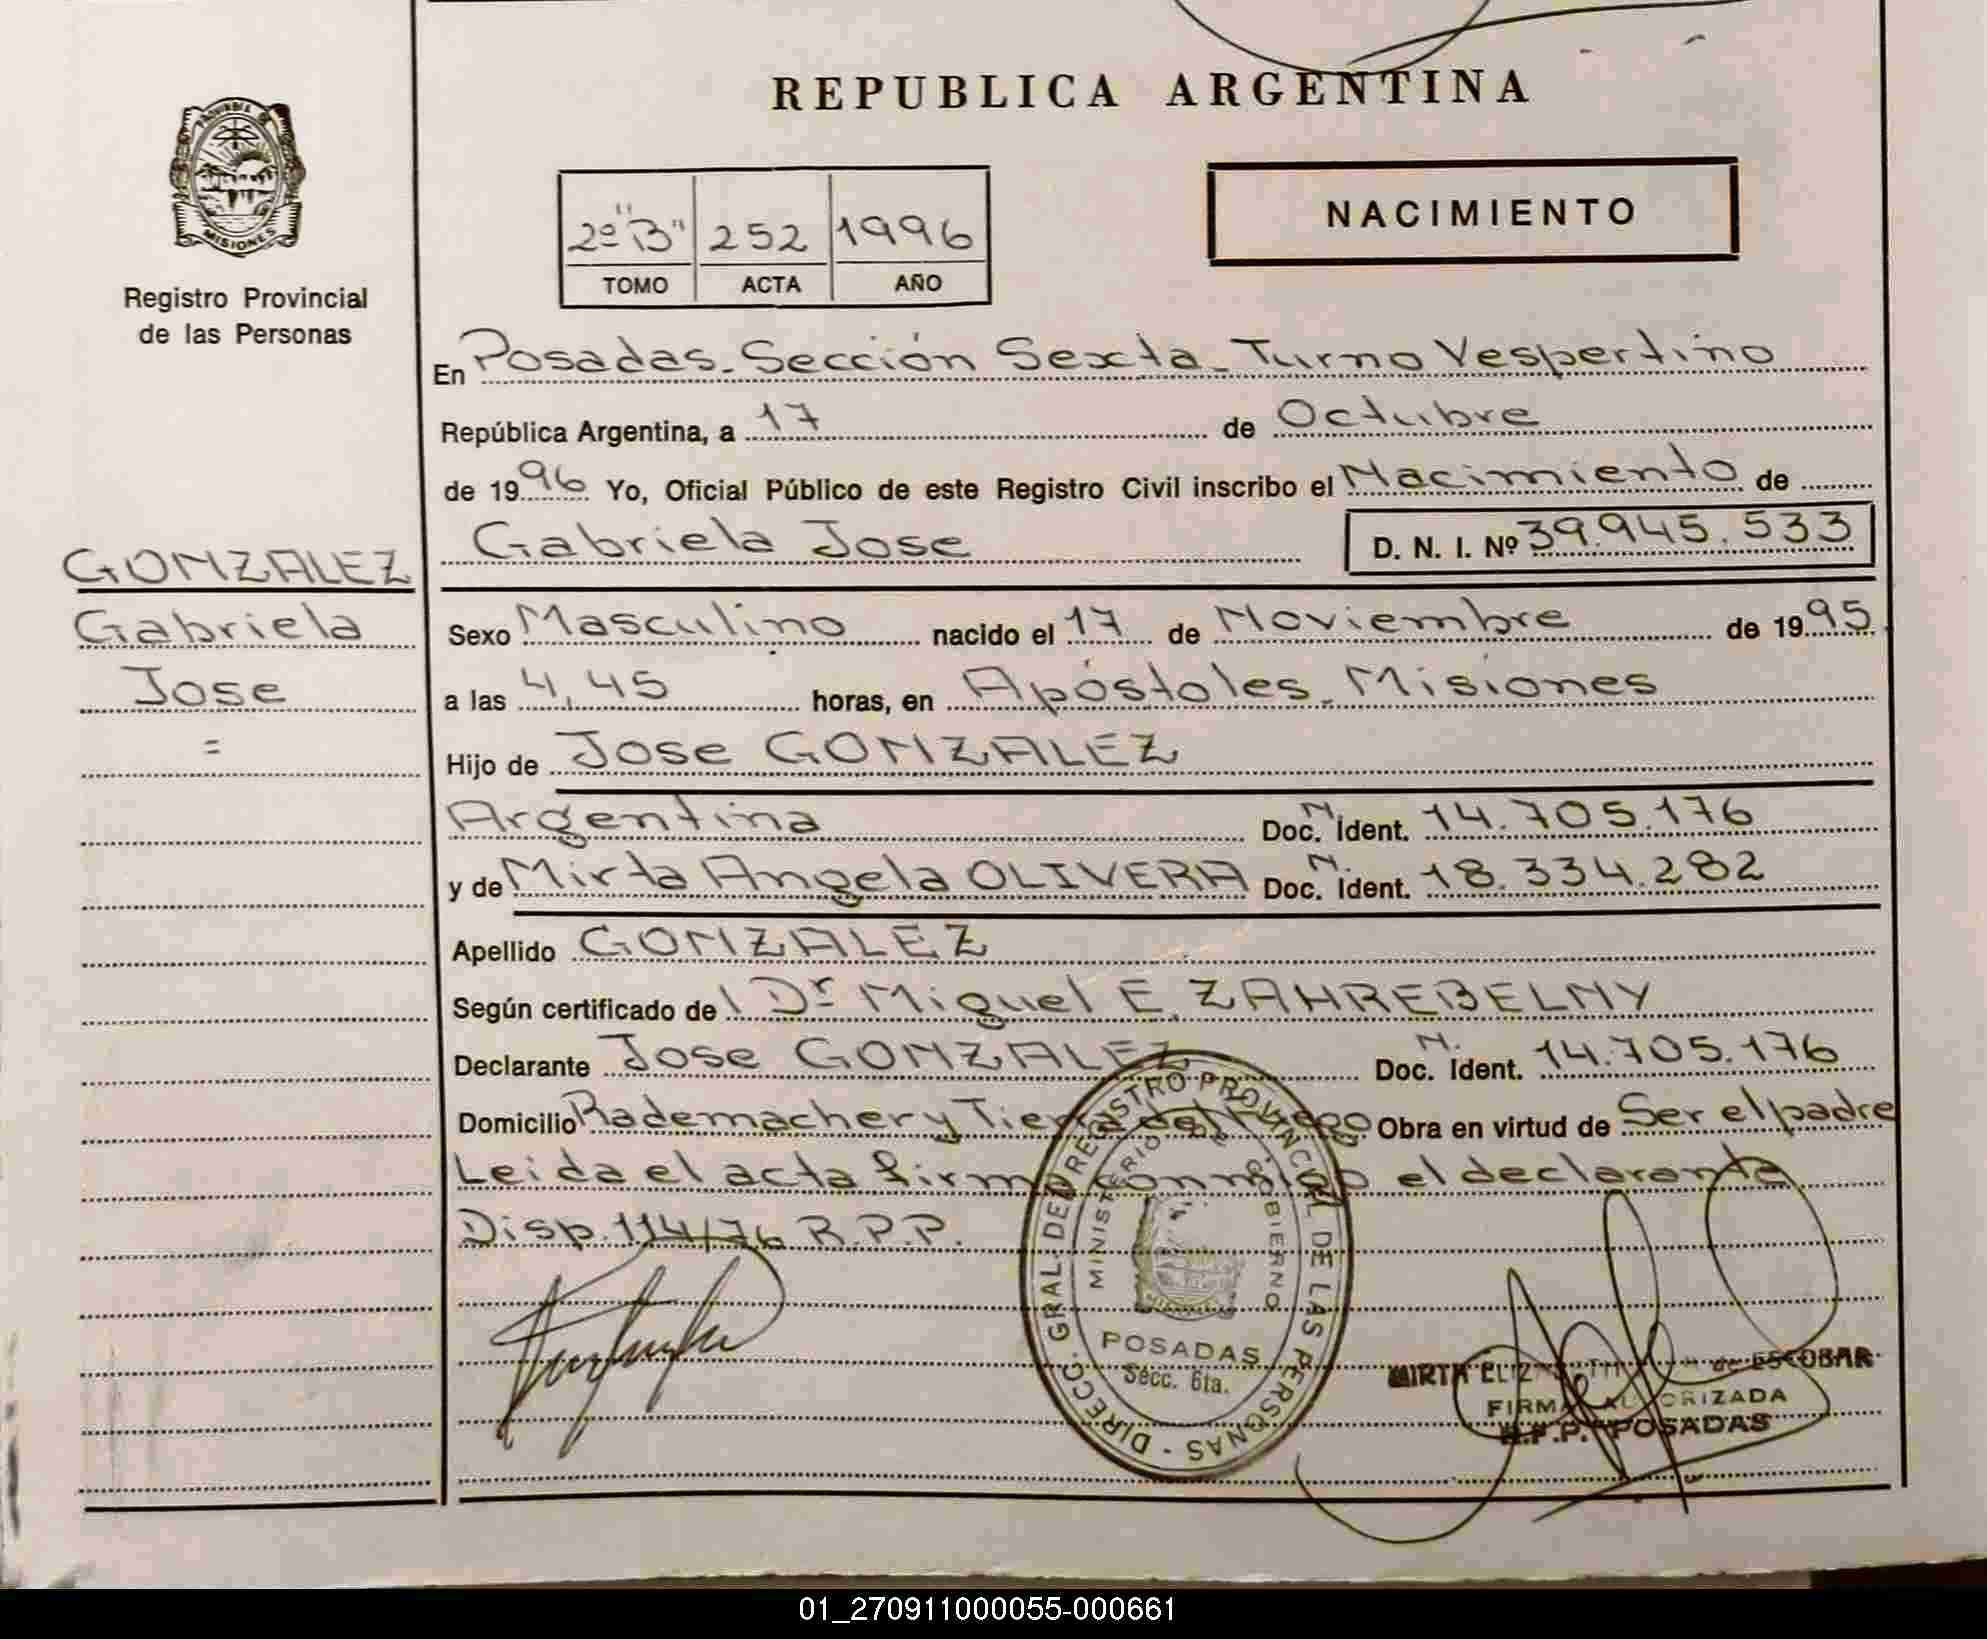 REPUBLICA ARGENTINA
PROVINCIA DE
MISIONES
Registro Provincial
de las Personas
2º "B" 252 1996
TOMO ACTA AÑO
NACIMIENTO
En Posadas. Sección Sexta. Turno Vespertino
República Argentina, a 17 de Octubre
de 1996 Yo, Oficial Público de este Registro Civil inscribo el Nacimiento de
Gabriela Jose D. N. I. Nº 39.945.533
GONZALEZ
Gabriela
Jose
=
Sexo Masculino nacido el 17 de Noviembre de 1995
a las 4,45 horas, en Apóstoles. Misiones
Hijo de Jose GONZALEZ
Argentina Doc. N. Ident. 14.705.176
y de Mirta Angela OLIVERA Doc. N. Ident. 18.334.282
Apellido GONZALEZ
Según certificado del Dr Miguel E. ZAHREBELNY
Declarante Jose GONZALEZ N. Doc. Ident. 14.705.176
Domicilio Rademacher y Tierra del Fuego Obra en virtud de Ser el padre
Leida el acta firma conmigo el declarante
Disp. 114/76 R.P.P.
DIRECC. GRAL. DEL REGISTRO PROVINCIAL DE LAS PERSONAS -
MINISTERIO DE GOBIERNO
POSADAS
Secc. 6ta.
MIRTA de ESCOBAR
FIRMA AUTORIZADA
R.P.P. POSADAS
01_270911000055-000661